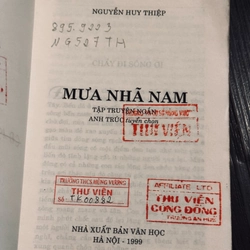 NGUYỄN HUY THIỆP
895.9223
NG527TH
MƯA NHÃ NAM
TẬP TRUYỆN NGẮN
ANH TRÚC tuyển chọn
THƯ VIỆN
TRƯỜNG THCS HÙNG VƯƠNG
THƯ VIỆN
Số: TK00882
AFFILIATE LTD
THƯ VIỆN
CỘNG ĐỒNG
NHÀ XUẤT BẢN VĂN HỌC
HÀ NỘI - 1999